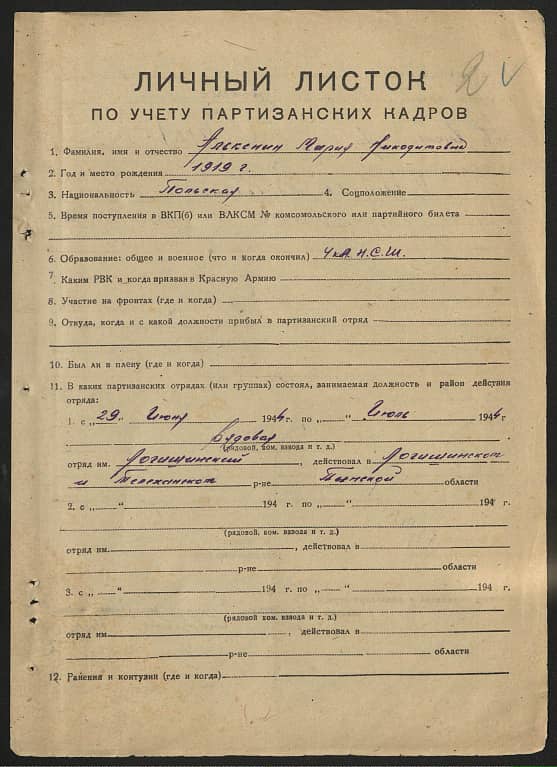 2 V
ЛИЧНЫЙ ЛИСТОК
ПО УЧЕТУ ПАРТИЗАНСКИХ КАДРОВ
1. Фамилия, имя и отчество Мария
2. Год и место рождения 1919 г.
3. Национальность Польская 4. Соцположение
5. Время поступления в ВКП(б) или ВЛКСМ № комсомольского или партийного билета
6. Образование: общее и военное (что и когда окончил) 4 кл. Н.С.Ш.
7. Каким РВК и когда призван в Красную Армию
8. Участие на фронтах (где и когда)
9. Откуда, когда и с какой должности прибыл в партизанский отряд
10. Был ли в плену (где и когда)
11. В каких партизанских отрядах (или группах) состоял, занимаемая должность и район действия
отряда:
1. с „29“ Июня 1944 г. по „ “ Июль 1944 г
Рядовая
(рядовой, ком. взвода и т. д.)
отряд им. Логишинский, действовал в Логишинском
и Телеханском р-не Пинской области
2. с „ “ 194 г. по „ “ 194 г.
(рядовой, ком. взвода и т. д.)
отряд им. , действовал в
р-не области
3. с „ “ 194 г. по „ “ 194 г.
(рядовой ком. взвода и т. д.)
отряд им. , действовал в
р-не области
12. Ранения и контузии (где и когда)